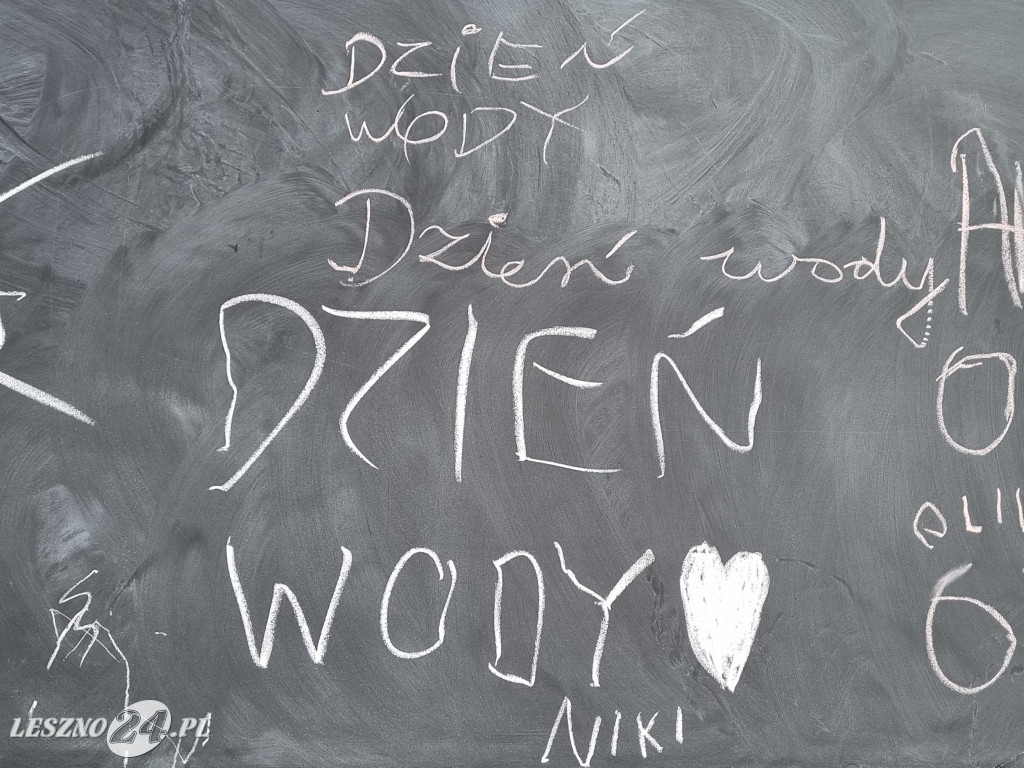 DZIEŃ
WODY
Dzień wody
DZIEŃ
WODY
NIKI
LESZNO24.PL